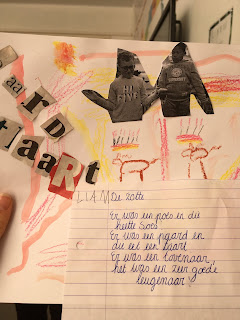 aard
tlaaRt
LIAM De zotte
Er was een poes en die
heette Soes
Er was een paard en
die eet een taart
Er was een tovenaar,
het was een zeer goede
leugenaar